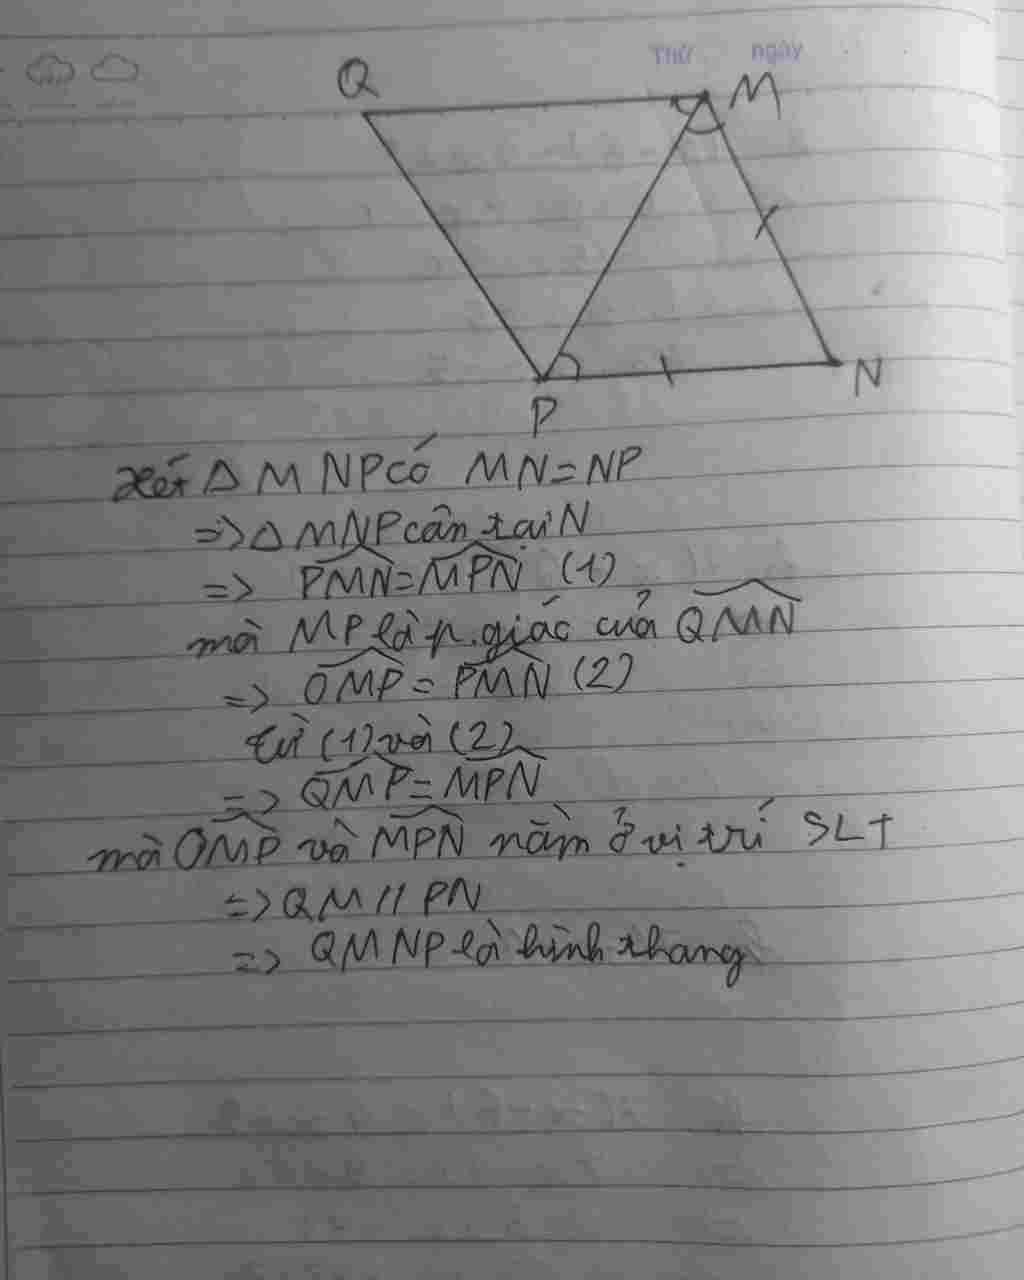 Thứ ngày
Q
M
N
P
Xét Δ MNP có MN = NP
=> Δ MNP cân tại N
=> PMN = MPN (1)
mà MP là p.giác của QMN
=> QMP = PMN (2)
từ (1) và (2)
=> QMP = MPN
mà QMP và MPN nằm ở vị trí SLT
=> QM // PN
=> QMNP là hình thang